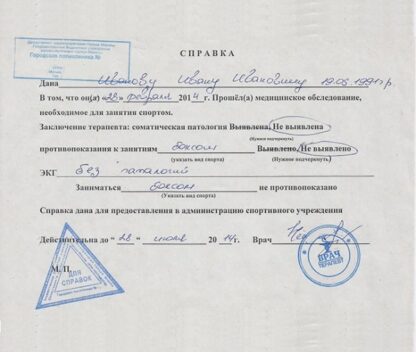 Городская поликлиника №
СПРАВКА
Дана Иванову Ивану Ивановичу
В том, что он(а) «28» февраля 2014 г. Прошёл(а) медицинское обследование,
необходимое для занятия спортом.
Заключение терапевта: соматическая патология Выявлена, Не выявлена
(Нужное подчеркнуть)
противопоказания к занятиям боксом Выявлено, Не выявлено
(указать вид спорта) (Нужное подчеркнуть)
ЭКГ без патологий
Заниматься боксом не противопоказано
(Указать вид спорта)
Справка дана для предоставления в администрацию спортивного учреждения
Действительна до " 28 " июля 2014г. Врач
М. П.
ДЛЯ
СПРАВОК
ВРАЧ
ТЕРАПЕВТ